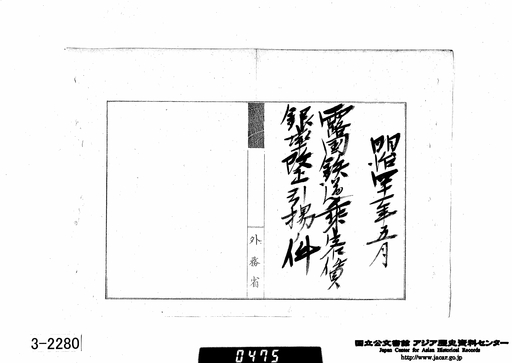 明治四十一年五月
露国鉄道乗車賃
銀墺陸上引揚ノ件
外務省
3-2280
0475
国立公文書館 アジア歴史資料センター
Japan Center for Asian Historical Records
http://www.jacar.go.jp